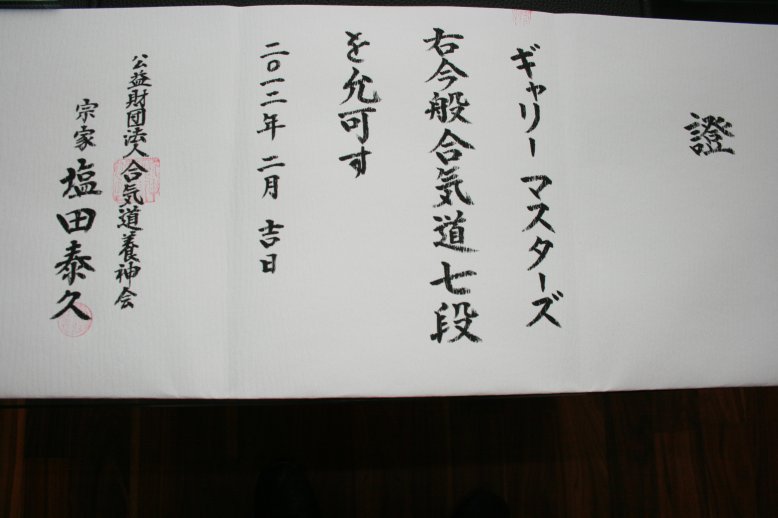 證
ギャリー マスターズ
右今般合気道七段
を允可す
二〇一二年 二月 吉日
公益財団法人合気道養神会
宗家 塩田泰久